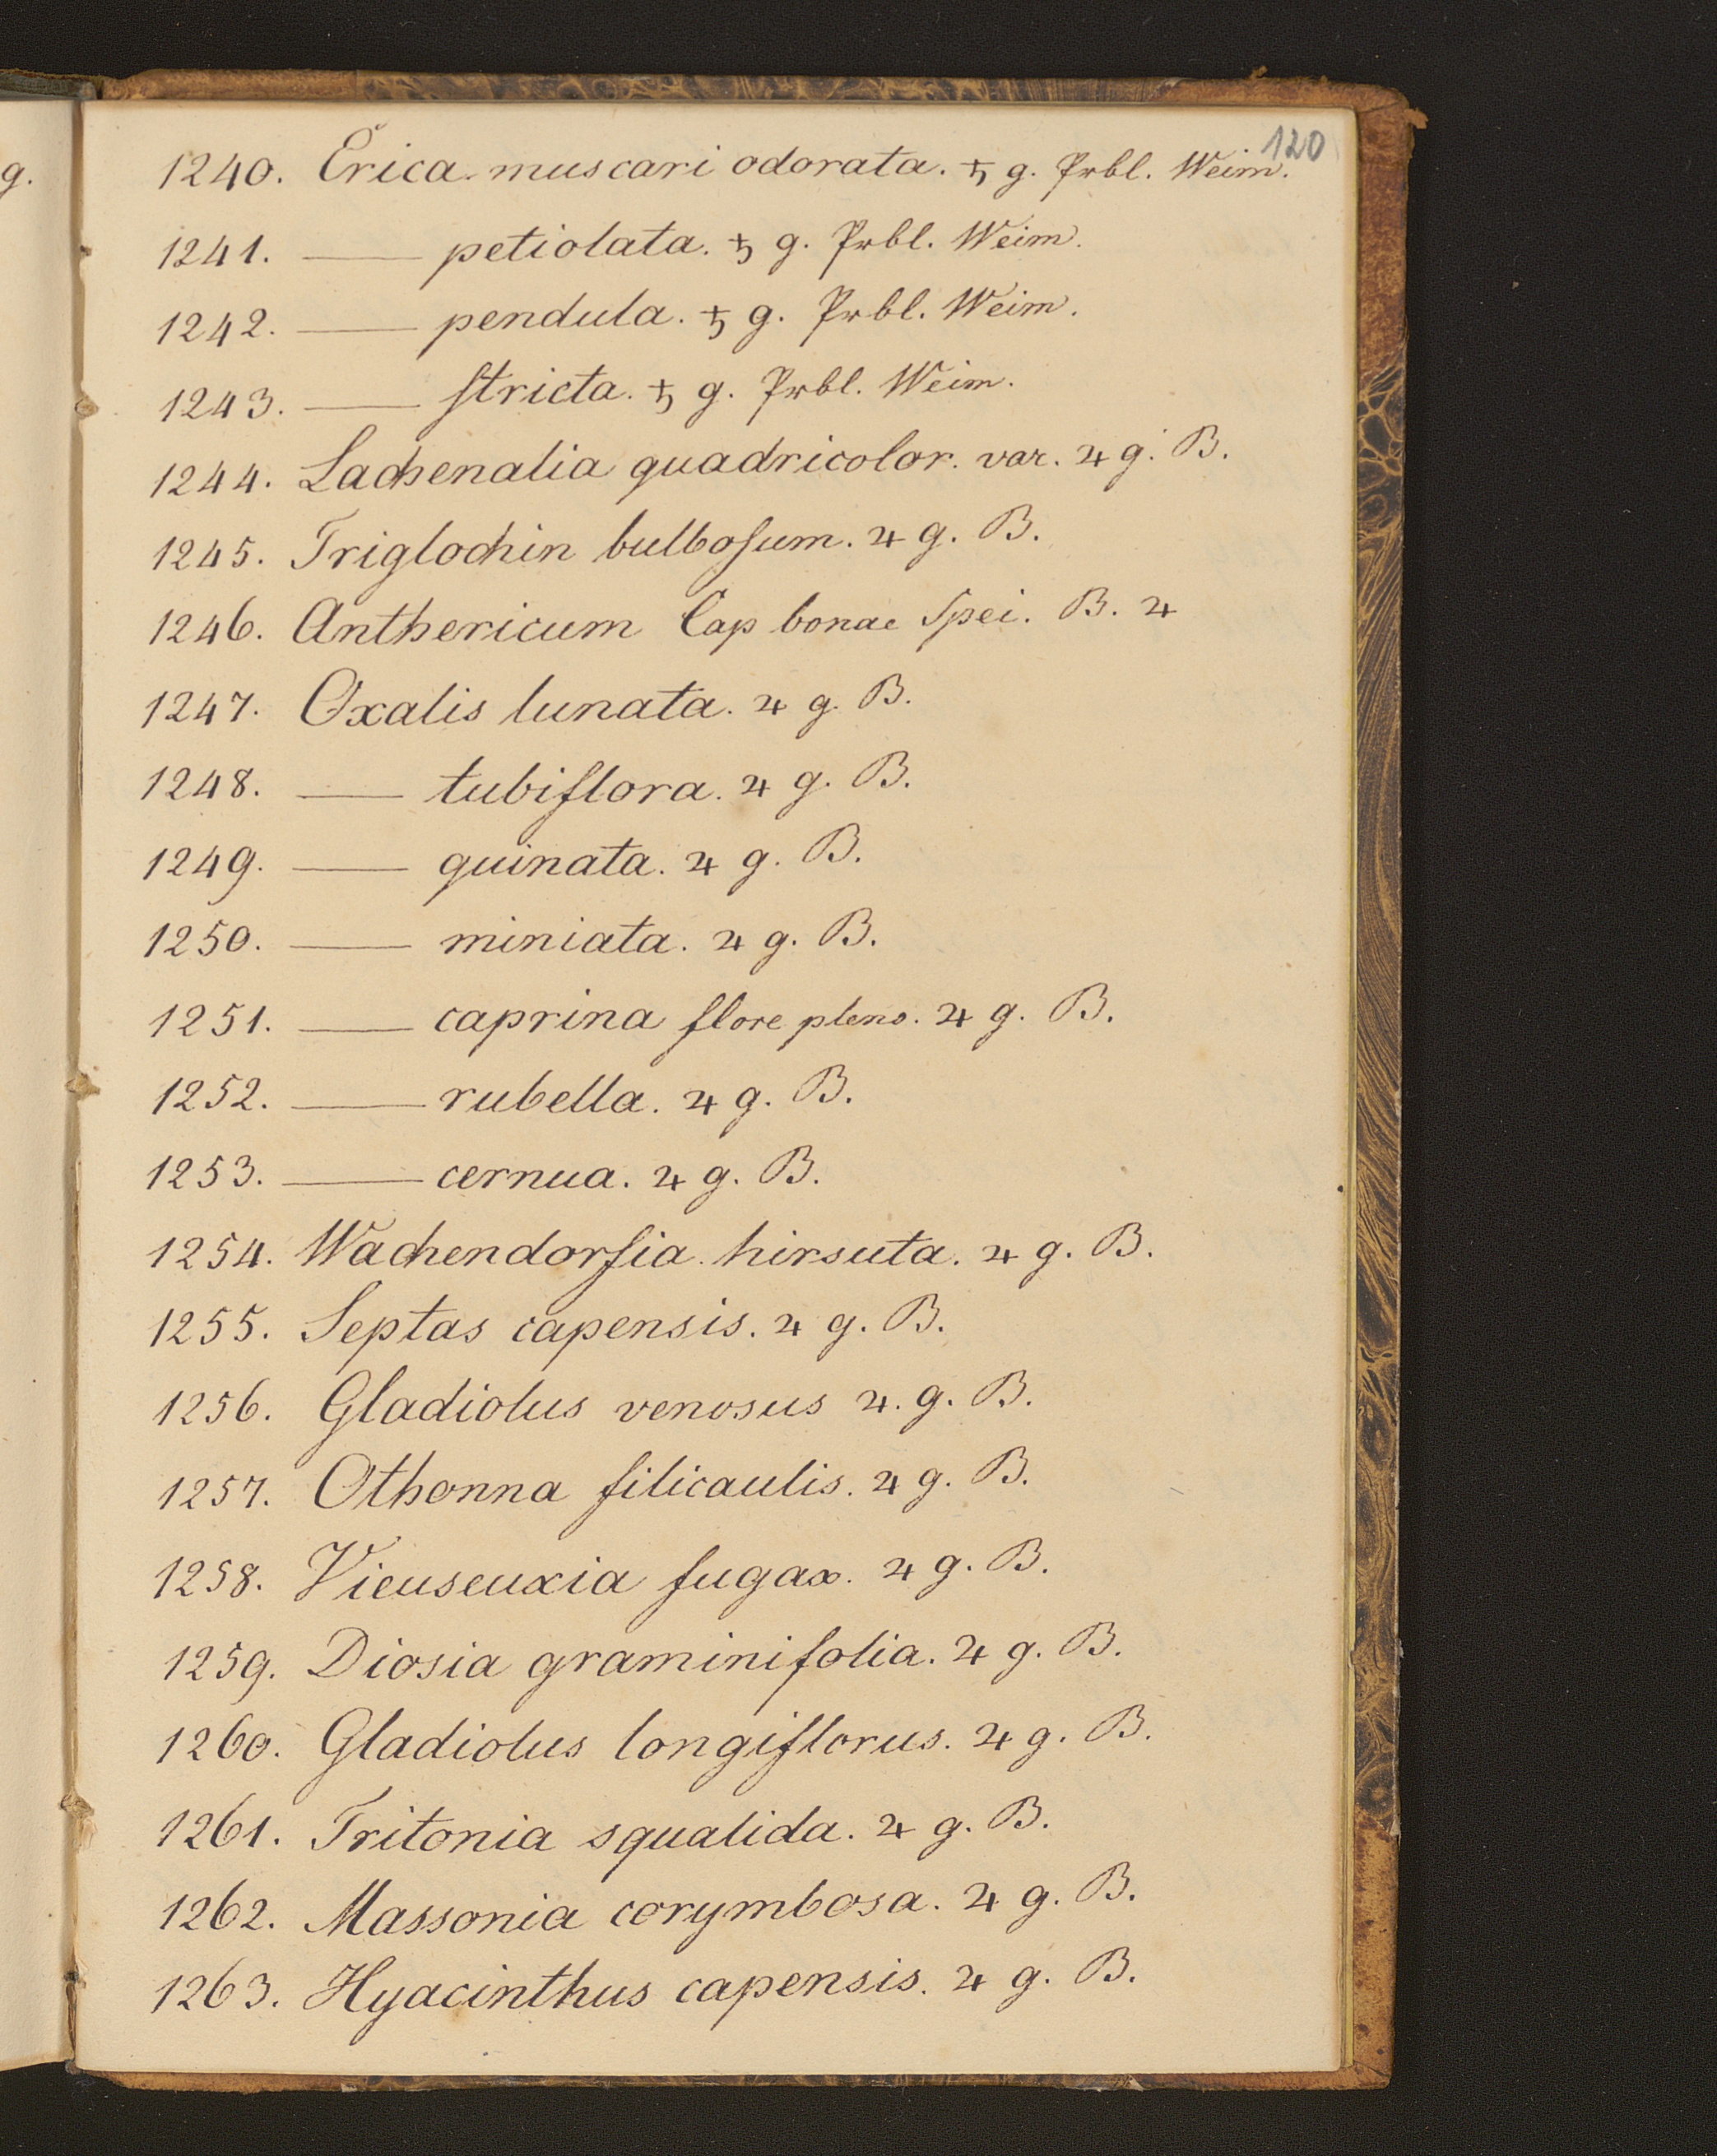 120
g.
1240. Erica muscari odorata. ♄ g. Prbl. Weim.
1241. —— petiolata. ♄ g. Prbl. Weim.
1242. —— pendula. ♄ g. Prbl. Weim.
1243. —— ſtricta. ♄ g. Prbl. Weim.
1244. Lachenalia quadricolor. var. ♃ g. B.
1245. Triglochin bulboſum. ♃ g. B.
1246. Anthericum Cap bonae Spei. B. ♃
1247. Oxalis lunata. ♃ g. B.
1248. —— tubiflora. ♃ g. B.
1249. —— quinata. ♃ g. B.
1250. —— miniata. ♃ g. B.
1251. —— caprina flore pleno. ♃ g. B.
1252. —— rubella. ♃ g. B.
1253. —— cernua. ♃ g. B.
1254. Wachendorfia hirsuta. ♃ g. B.
1255. Septas capensis. ♃ g. B.
1256. Gladiolus venosus ♃. g. B.
1257. Othonna filicaulis. ♃ g. B.
1258. Vieuseuxia fugax. ♃ g. B.
1259. Diosia graminifolia. ♃ g. B.
1260. Gladiolus longiflorus. ♃ g. B.
1261. Tritonia squalida. ♃ g. B.
1262. Massonia corymbosa. ♃ g. B.
1263. Hyacinthus capensis. ♃ g. B.